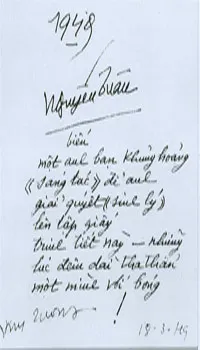 1948
Nguyễn Tuân
biếu
một anh bạn khủng hoảng
«sáng tác» để anh
giải quyết «sinh lý»
lên tập giấy
trinh tiết này – những
lúc đêm dài tha thẩn
một mình với bóng
!
18-3-49